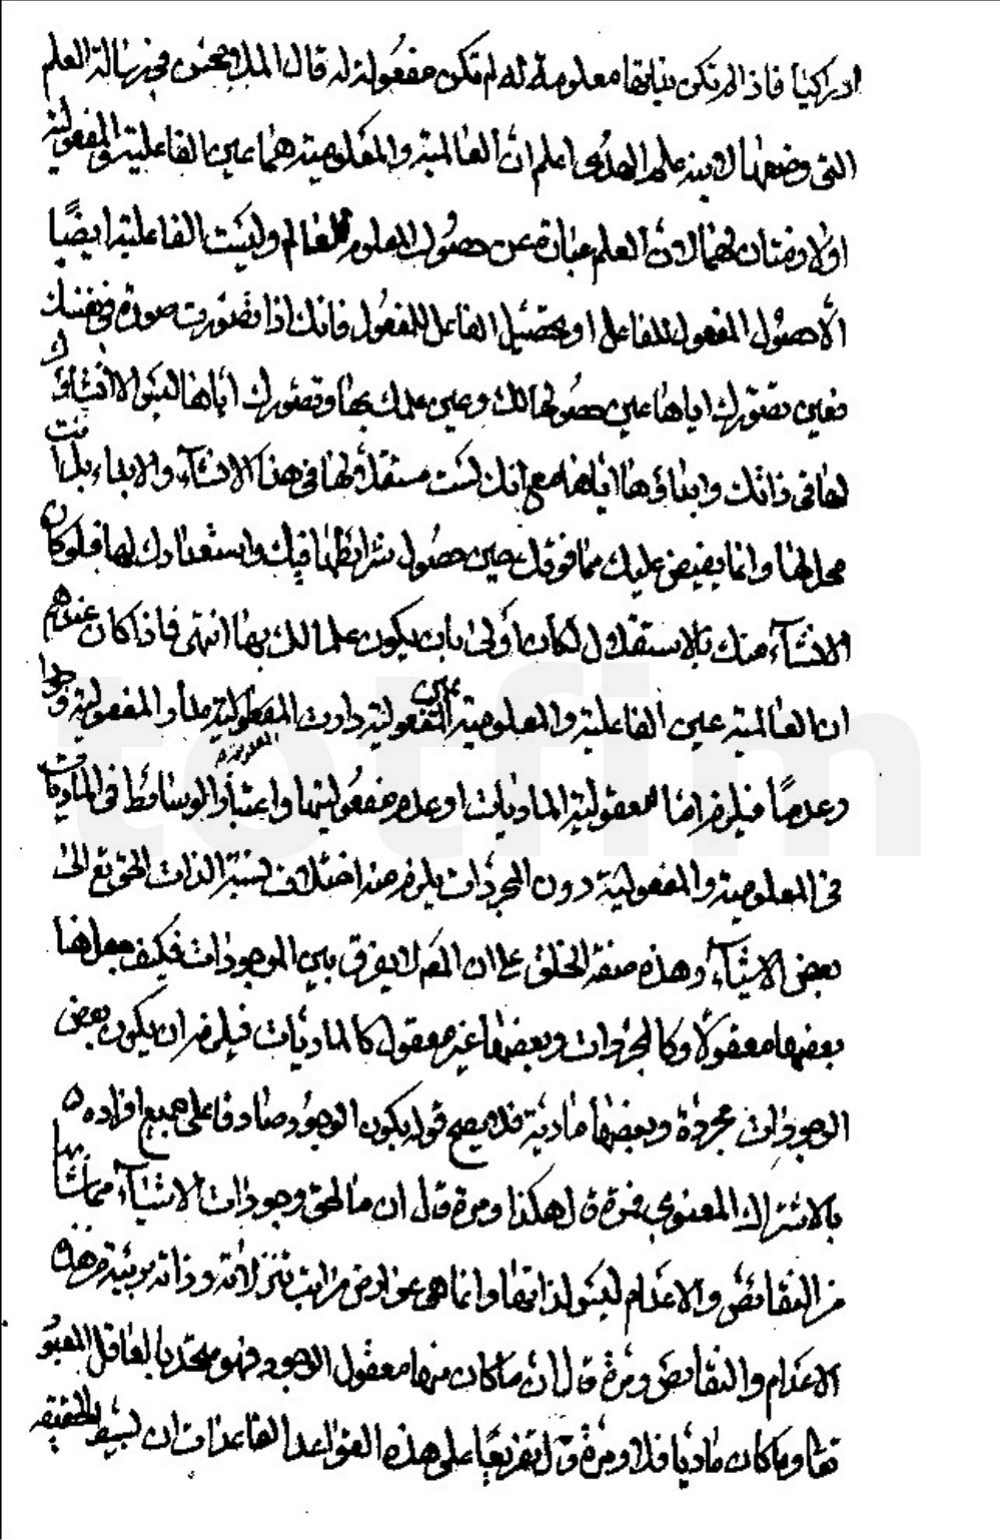 ادراكيا فاذا لم تكن بذاتها معلومة له لم تكن مفعولة له قال الملا محسن في رسالة العلم
التي وضعها لابنه علم الهدى اعلم ان العالمية والمعلومية هما عين الفاعلية والمفعولية
اولازمتان لهما لان العلم عبارة عن حصول المعلوم للعالم وليست الفاعلية ايضا
الا حصول المفعول للفاعل او تحصيل الفاعل للمفعول فانك اذا تصورت صورة في نفسك
فعين تصورك اياها عين حصولها لك وعين علمك بها وتصورك اياها ليس الا انشاؤك
لها في ذاتك وابداؤها اياها مع انك لست مستقلا لها في هذا الانشاء والابداء بل انت
محل لها وانما يفيض عليك مما فوقك حين حصول شرائطها فيك واستعدادك لها فلو كان
الانشاء منك بالاستقلال لكان اولى بان يكون علما لك بها انتهى فاذا كان عندهم
ان العالمية عين الفاعلية والمعلومية عين المفعولية دارت المعلومية مدار المفعولية وجودا
وعدما فيلزم اما معقولية الماديات او عدم مفعوليتها واعتبار الوسائط في الماديات
في المعلومية والمفعولية دون المجردات يلزم منه اختلاف نسبة الذات الحق تع الى
بعض الاشياء وهذه صفة الخلق على ان المص لا يفرق بين الموجودات فكيف جعل هنا
بعضها معقولا وكالمجردات وبعضها غير معقول كالماديات فيلزم ان يكون بعض
الوجودات مجردة وبعضها مادية فلا يصح قوله بكون الوجود صادقا على جميع افراده
بالاشتراك المعنوي فمرة قال هكذا ومرة قال ان ما لحق وجودات الاشياء مما شابها
من النقائص والاعدام ليس لذاتها وانما هي عوارض مراتب تنزلاته وذاته بريئة من هذه
الاعدام والنقائص ومرة قال ان ما كان منها معقول الوجود فهو متحد بالعاقل المعبود
تعا وما كان ماديا فلا ومرة قال تفريعا على هذه القواعد القاعدات ان بسيط الحقيقه
totfim